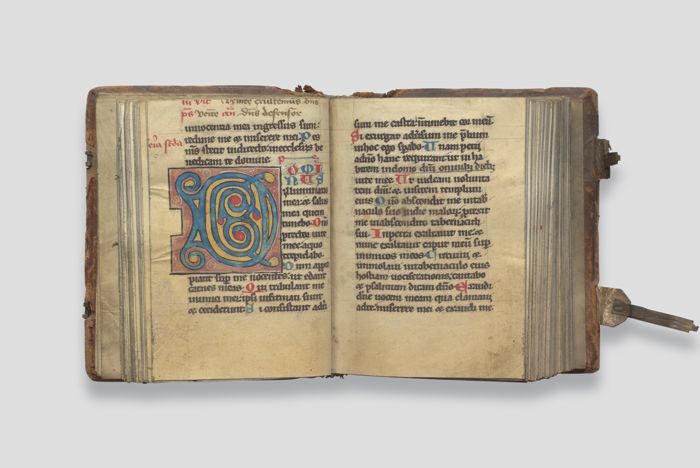 ps venite an dns defensor
innocentia mea ingressus sum:
redime me et miserere mei. Pes
meus stetit in directo: in ecclesiis be
nedicam te domine.
DOMI
NUS
illuminatio
mea: et salus
mea quem
timebo. Dns
protector vite
mee: a quo
trepidabo.
Dum appro
piant super me nocentes: ut edant
carnes meas. Qui tribulant me
inimici mei: ipsi infirmati sunt
et ceciderunt. Si consistant adv
sum me castra: non timebit cor meum.
Si exurgat adversum me prelium:
in hoc ego sperabo. Unam petii
a domino hanc requiram: ut in ha
bitem in domo domini omnibus diebus
vite mee. Ut videam volunta
tem domini: et visitem templum
eius. Quoniam abscondit me in tab
naculo suo: in die malorum protexit
me in abscondito tabernaculi
sui. In petra exaltavit me: et
nunc exaltavit caput meum sup
inimicos meos. Circuivi et
immolavi in tabernaculo eius
hostiam vociferationis: cantabo
et psalmum dicam domino. Exaudi
domine vocem meam qua clamavi
ad te: miserere mei et exaudi me.